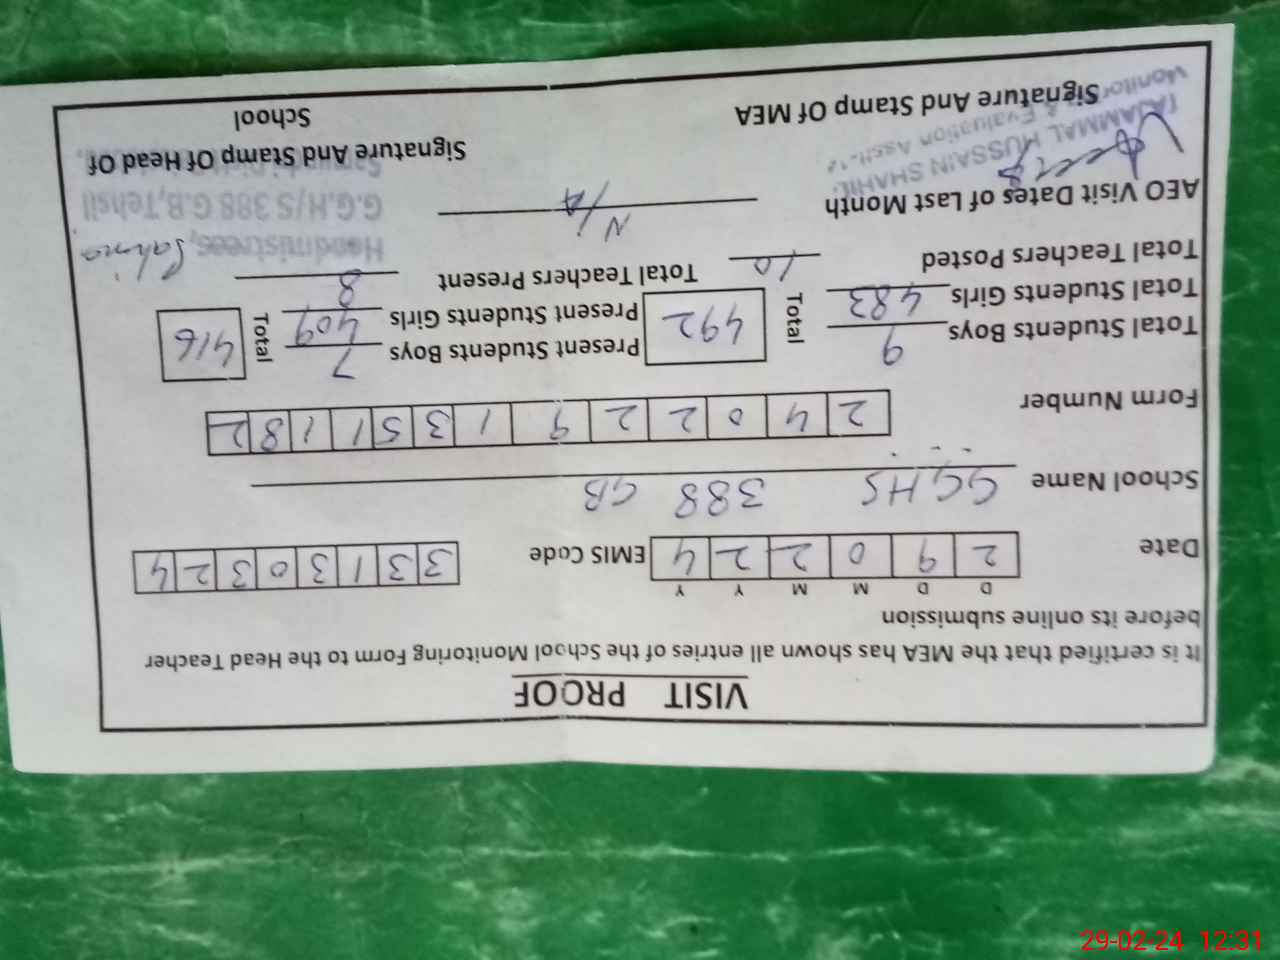 VISIT PROOF
It is certified that the MEA has shown all entries of the School Monitoring Form to the Head Teacher
before its online submission
D D M M Y Y
Date 2 9 0 2 2 4 EMIS Code 3 3 1 3 0 3 2 4
School Name GGHS 388 GB
Form Number 2 4 0 2 2 9 1 3 5 1 1 8 2
Total Students Boys 9 Total 492 Present Students Boys 7 Total 416
Total Students Girls 483 Present Students Girls 409
Total Teachers Posted 10 Total Teachers Present 8
AEO Visit Dates of Last Month N/A
Headmistress,
G.G.H/S 388 G.B,Tehsil
TAJAMMAL HUSSAIN SHAHID
Monitor & Evaluation Asstt.
Signature And Stamp Of MEA
Signature And Stamp Of Head Of
School
29-02-24 12:31